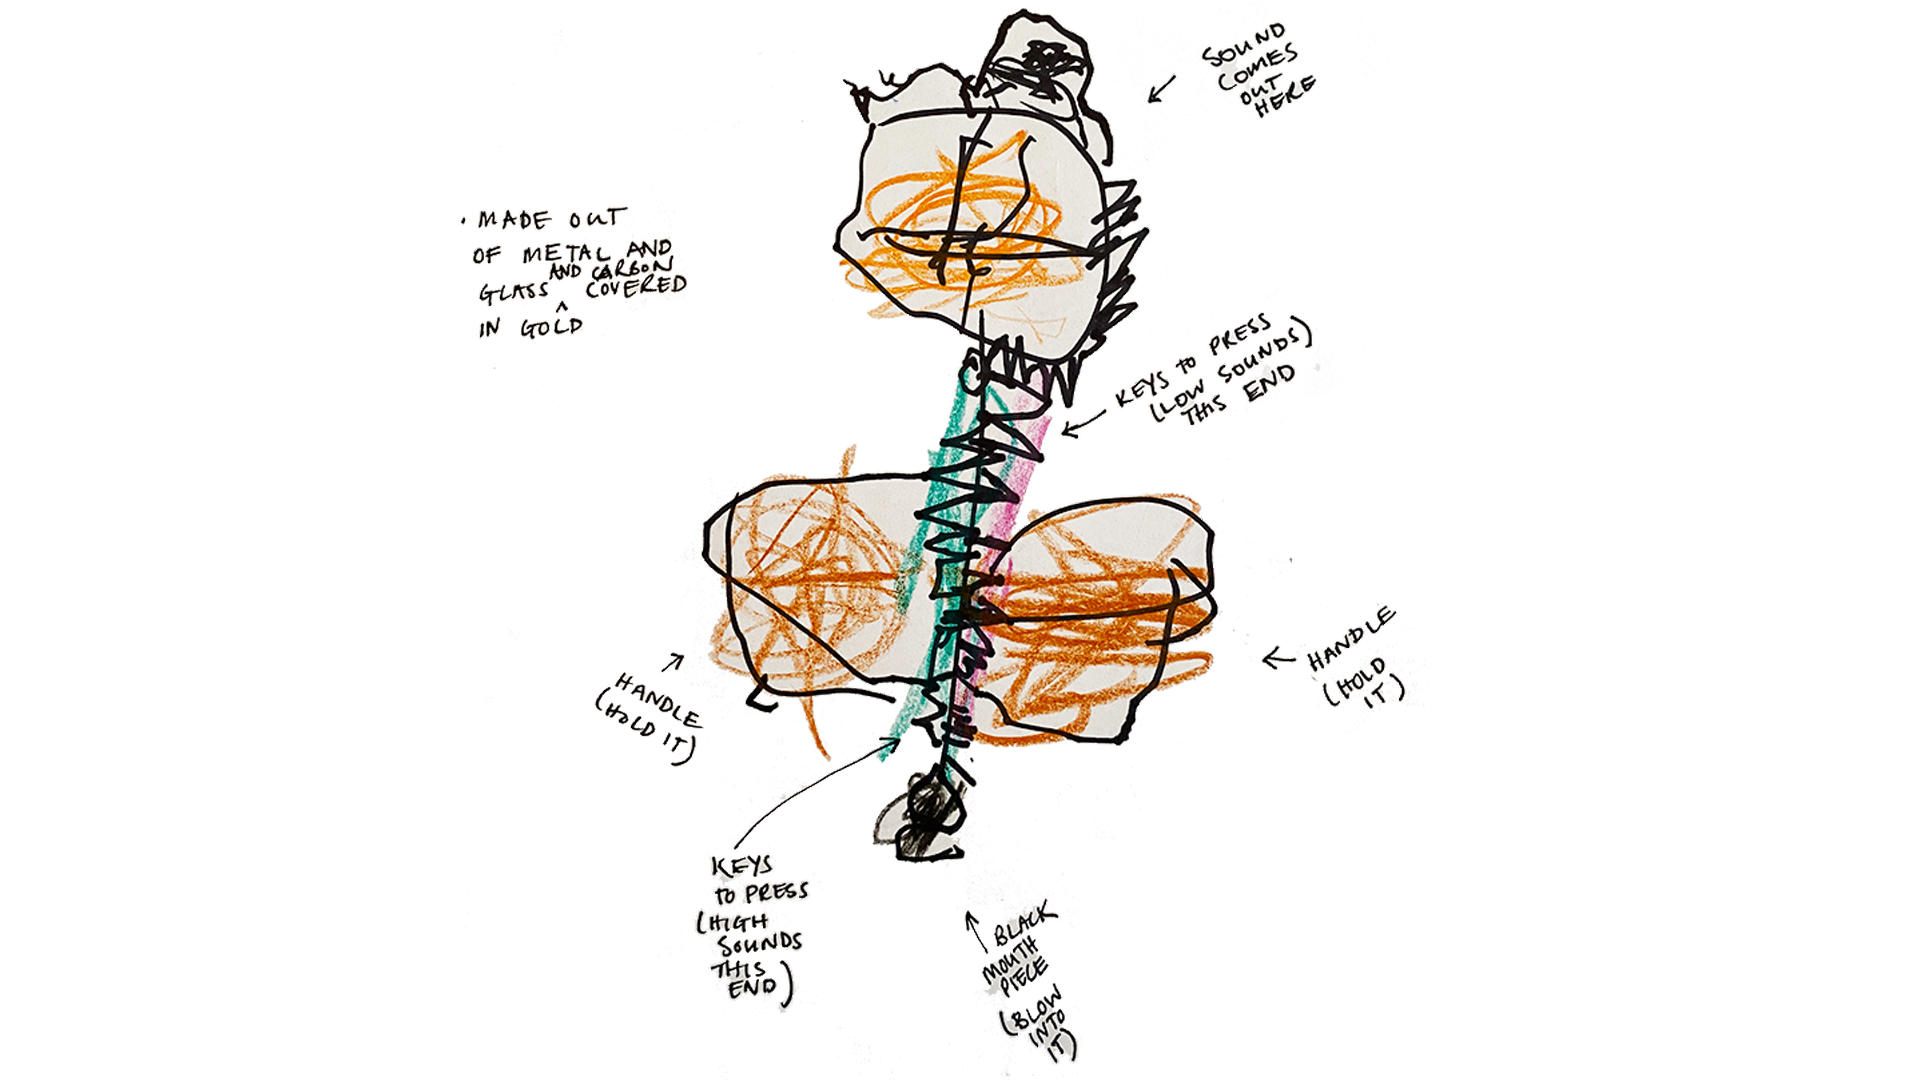 SOUND
COMES
OUT
HERE
• MADE OUT
OF METAL AND
AND CARBON
GLASS ^ COVERED
IN GOLD
KEYS TO PRESS
(LOW SOUNDS)
THIS END
HANDLE
(HOLD
IT)
HANDLE
(HOLD IT)
KEYS
TO PRESS
(HIGH
SOUNDS
THIS
END)
BLACK
MOUTH
PIECE
(BLOW
INTO
IT)